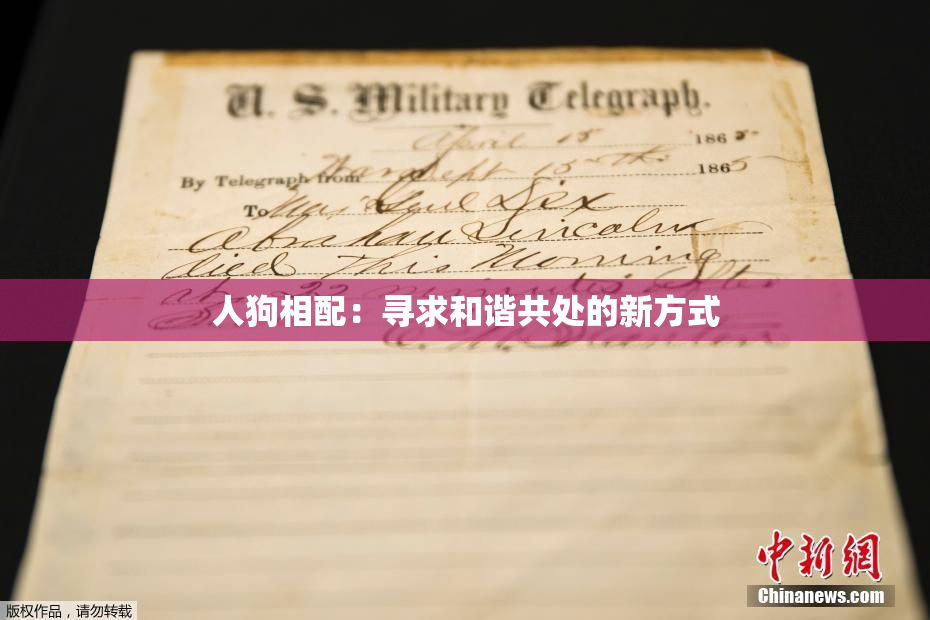 U. S. Military Telegraph.
April 15 1865
By Telegraph from War Dept 15th 1865
To Maj Genl Dix
Abraham Lincoln
died This Morning
at 22 minutes after
人狗相配：寻求和谐共处的新方式
E. M. Stanton
中新网
Chinanews.com
版权作品，请勿转载